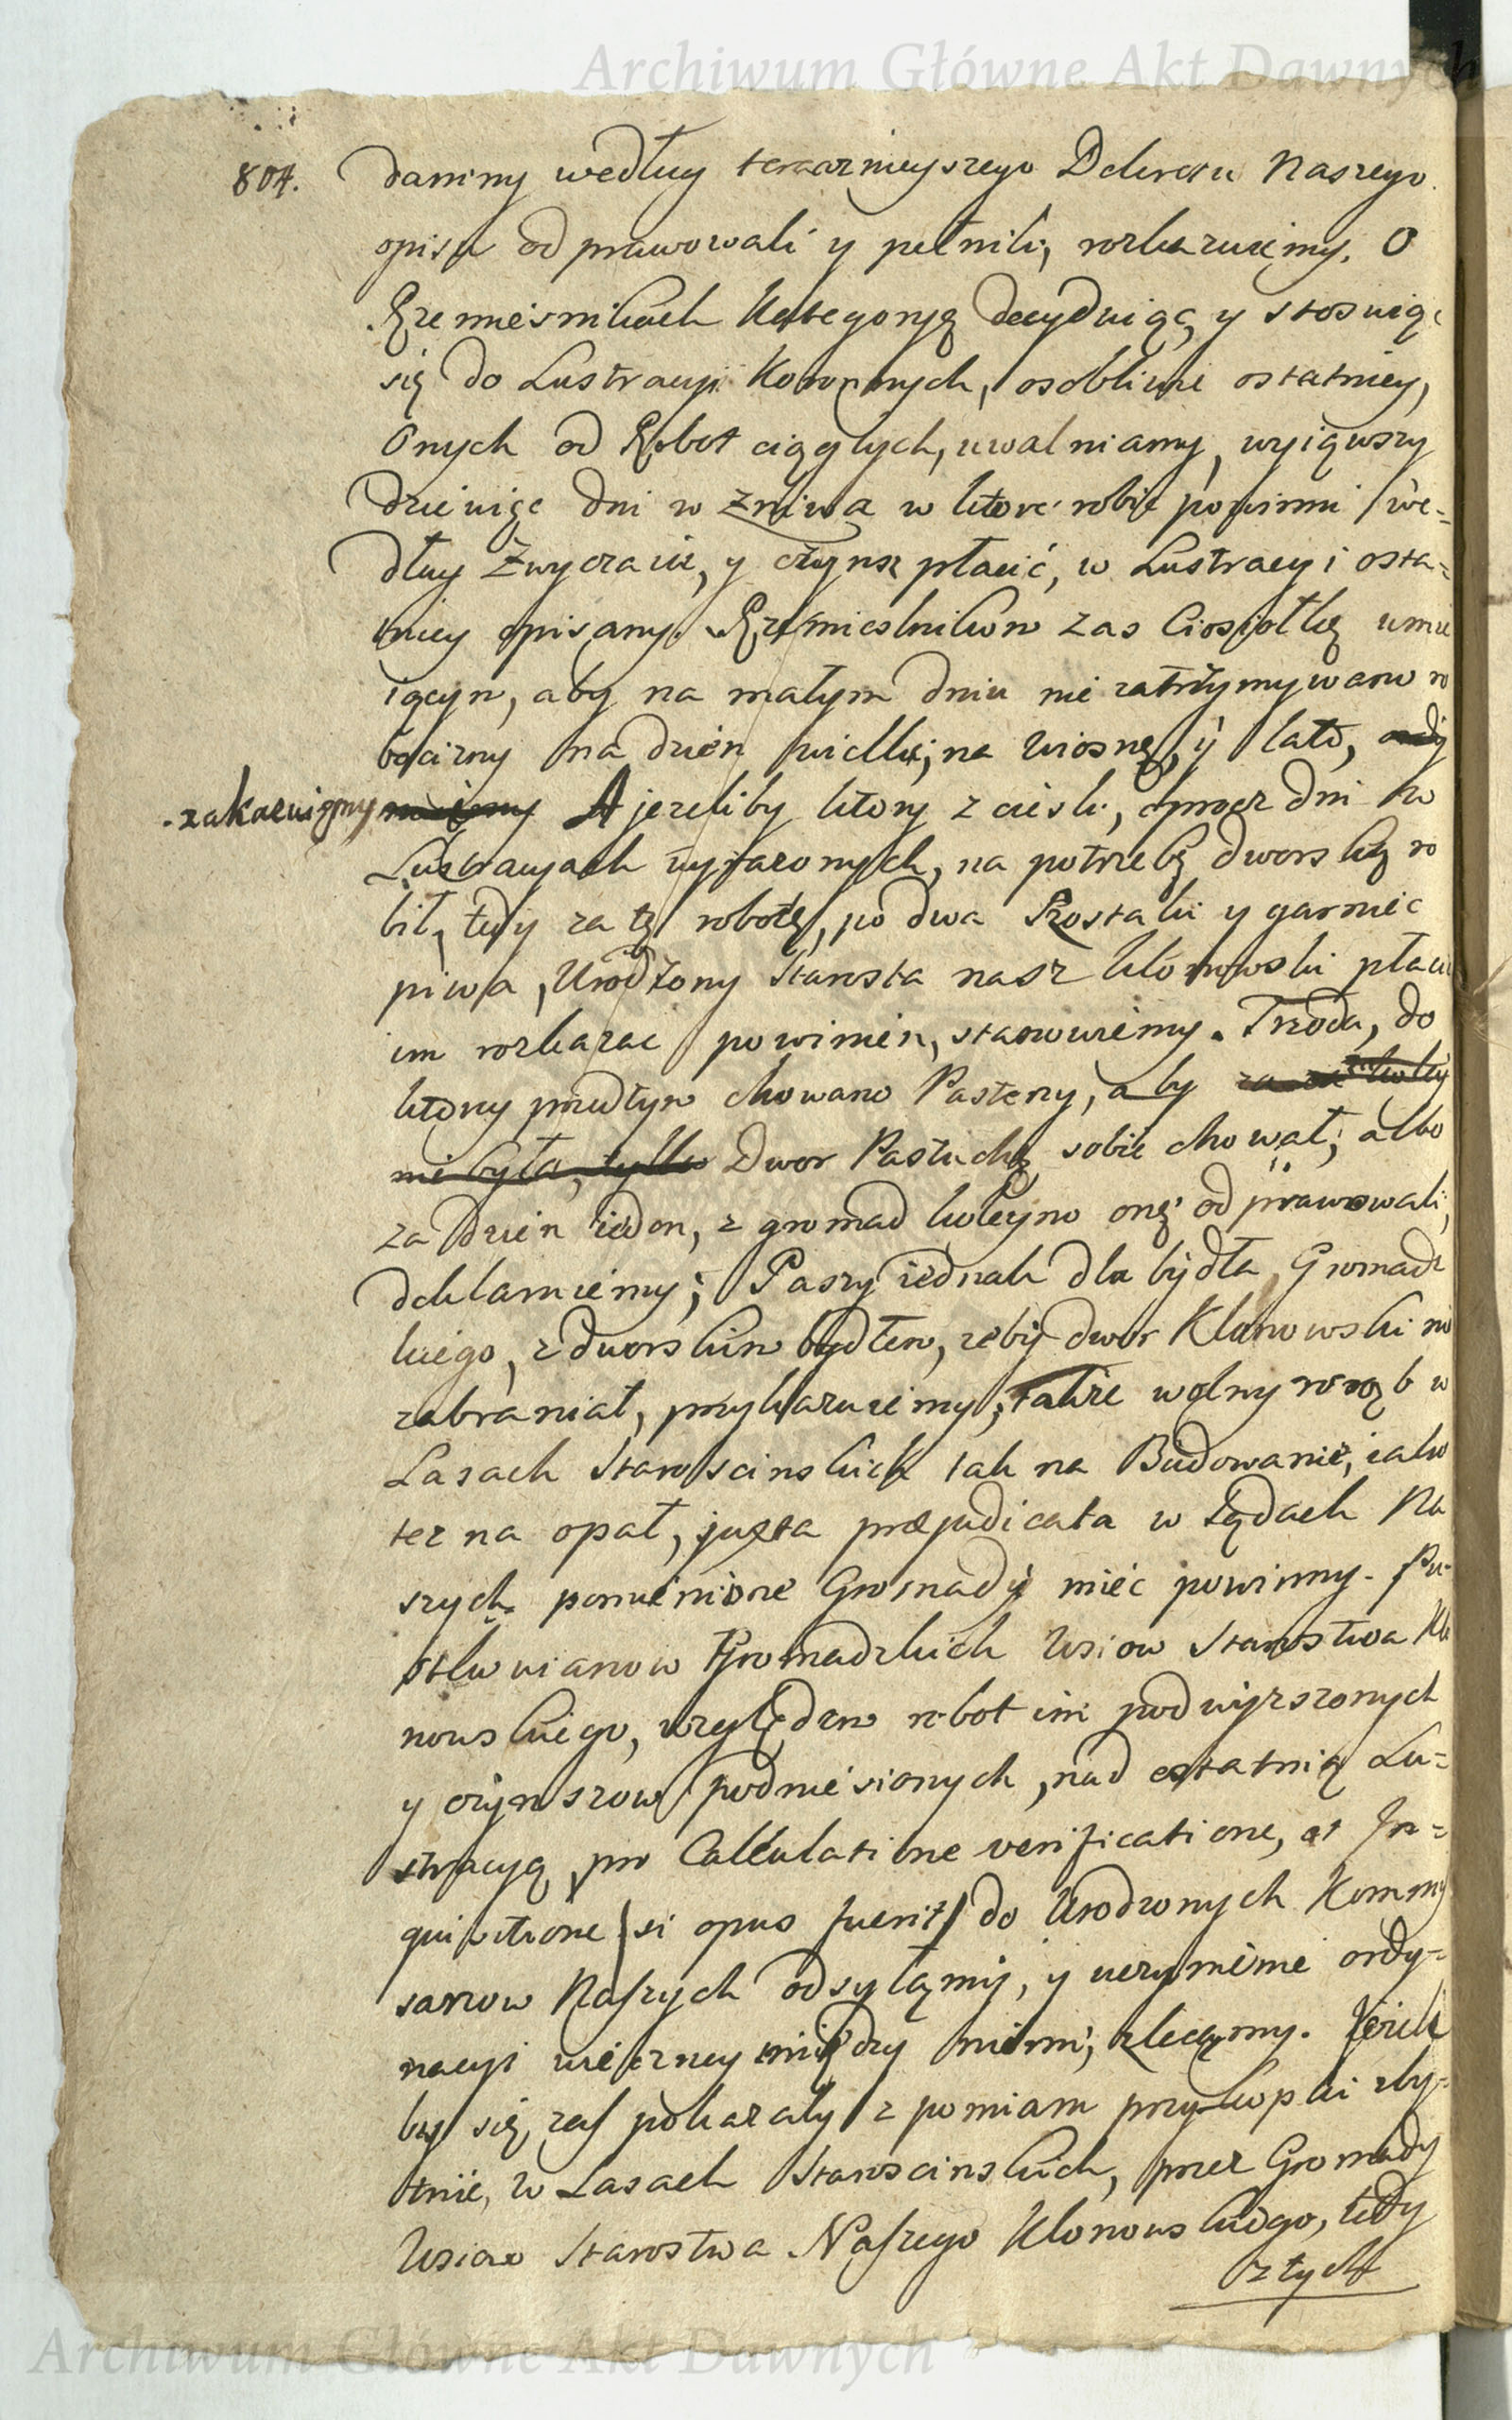 Archiwum Główne Akt Dawnych
804. daniny według teraznieyszego Dekretu Naszego
opisu odprawowali y pełnili, rozkazuiemy. O
Rzemiesnikach Kategoryą decyduiąc, y stosuiąc
się do Lustracyi Koronnych, osobliwie ostatniey,
Onych od Robot ciągłych, uwalniamy, wyiąwszy
dziewięc dni w Zniwa w ktore robić powinni we=
dług Zwyczaiu, y czynsz płacić, w Lustracyi osta=
tniey opisany. Rzemieslnikow zas Ciosiołkę umie
iącyn, aby na małym dniu nie zatrzymywano ro
bocizny na dzien wielki, na Wiosnę, y lato,
zakazuiemy A jezeliby ktory z ciesli, oprocz dni w
Lustracyach wyrazonych, na potrzebę dworską ro
bił, tedy za tę robotę, po dwa Szostaki y garniec
piwa, Urodzony Starosta nasz Klonowski płacic
im rozkazac powinien, stanowiemy. Trzoda, do
ktory przedtym chowano Pasterzy, aby
nie była, tylko Dwor Pastucha sobie chował; albo
za dzien ieden, z gromad koleyno onę odprawowali,
deklaruiemy; Paszy iednak dla bydła Gromadz
kiego, z dworskim bydłem, zeby dwor Klonowski nie
zabraniał, przykazuiemy; takze wolny wrąb w
Lasach Staroscinskich tak na Budowanie, iako
tez na opał, juxta præjudicata w Sądach Na
szych pomienione Gromady miec powinny. Po=
Gromadzkich Wsiow Starostwa Klo
nowskiego, względem robot im podwyzszonych
y czynszow podniesionych, nad ostatnią Lu=
stracyą pro Calculatione verificatione, et In=
quisitione (si opus fuerit) do Urodzonych Kommi
sarzow Naszych odsyłamy, y uczynienie ordy=
nacyi wieczney między niemi, zlecamy. Jezeli
by się zas pokazały z pomiaru przykopki zby=
tnie, w Lasach Staroscinskich, przez Gromady
Wsiow Starostwa Naszego Klonowskiego, tedy
z tych
Archiwum Główne Akt Dawnych